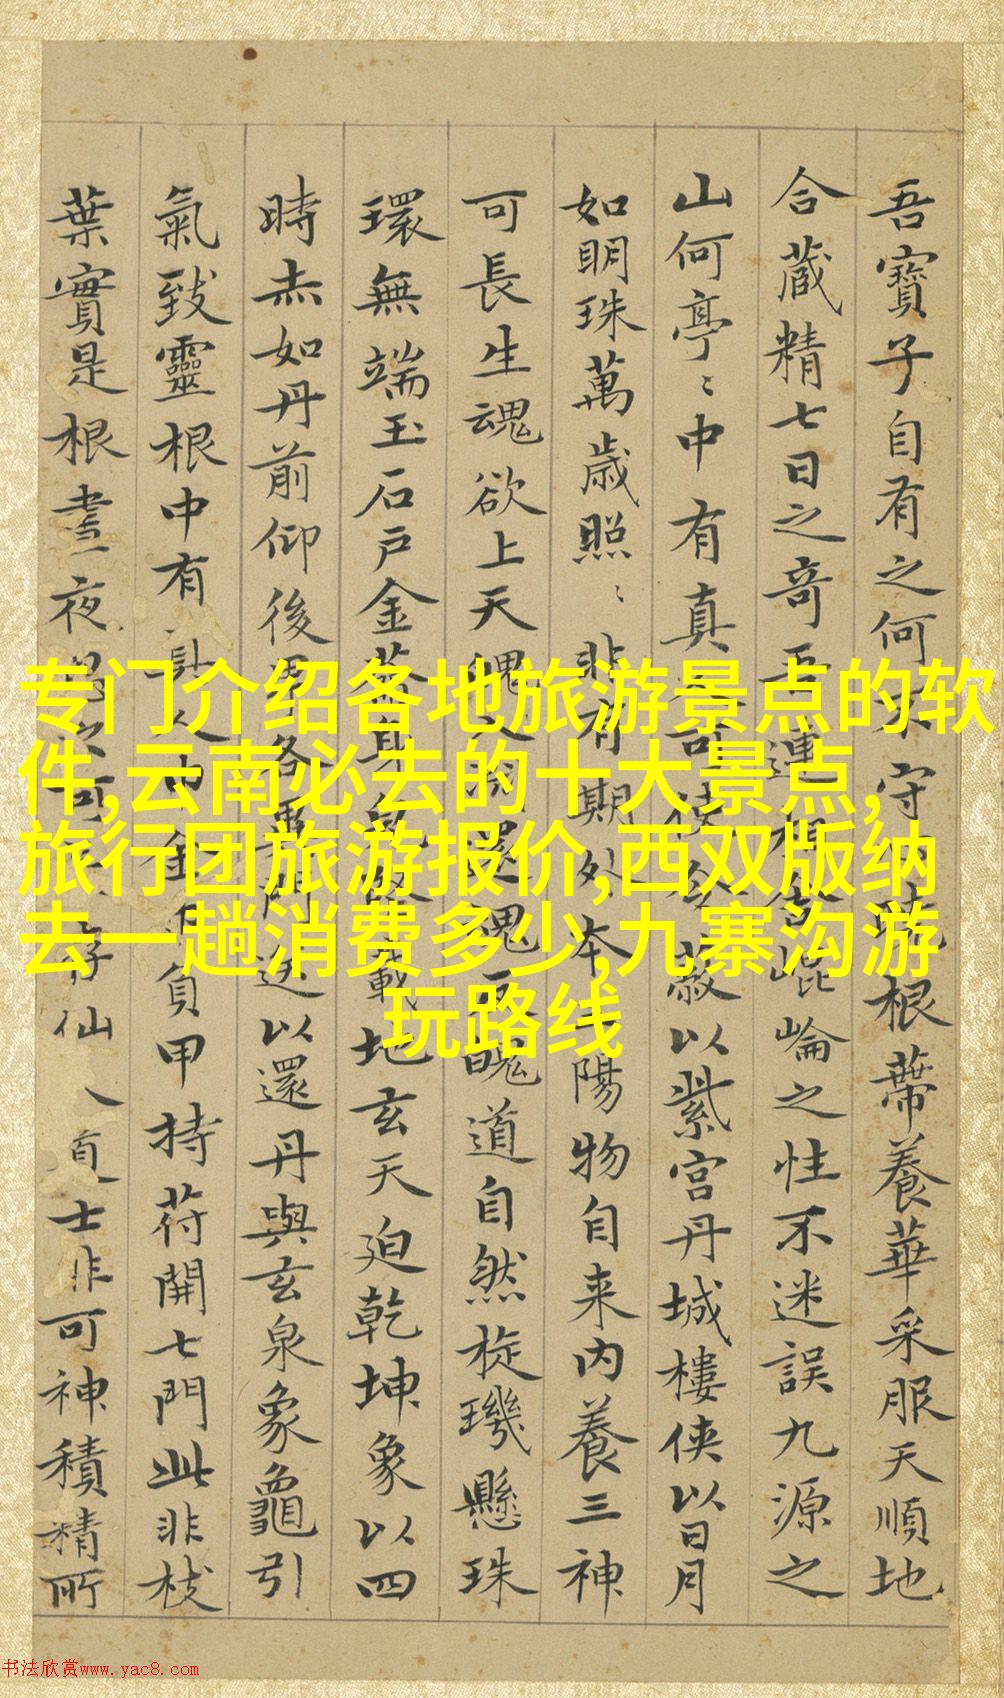 吾寶子自有之何不守根蔕養華采服天順地
合蔵精七日之奇吾連相崐崘之性不迷誤九源之
山何亭〻中有真可使令蔽以紫宮丹城樓俠以日月
如明珠萬歳照〻非有期外本陽物自来内養三神
可長生魂欲上天魄入還魂反魄道自然旋璣懸珠
環無端玉石戸金身載地玄天迫乾坤象以四
時赤如丹前仰後卑各門送以還丹與玄泉象龜引
氣致靈根中有真人巾金巾負甲持荷開七門此非枝
葉實是根晝夜思之可存仙人士非可神積精所
专门介绍各地旅游景点的软
件,云南必去的十大景点,
旅行团旅游报价,西双版纳
去一趟消费多少,九寨沟游
玩路线
书法欣赏www.yac8.com